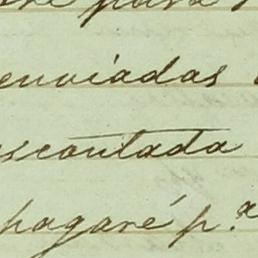 para
enviadas
escontada
pagaré p.ª